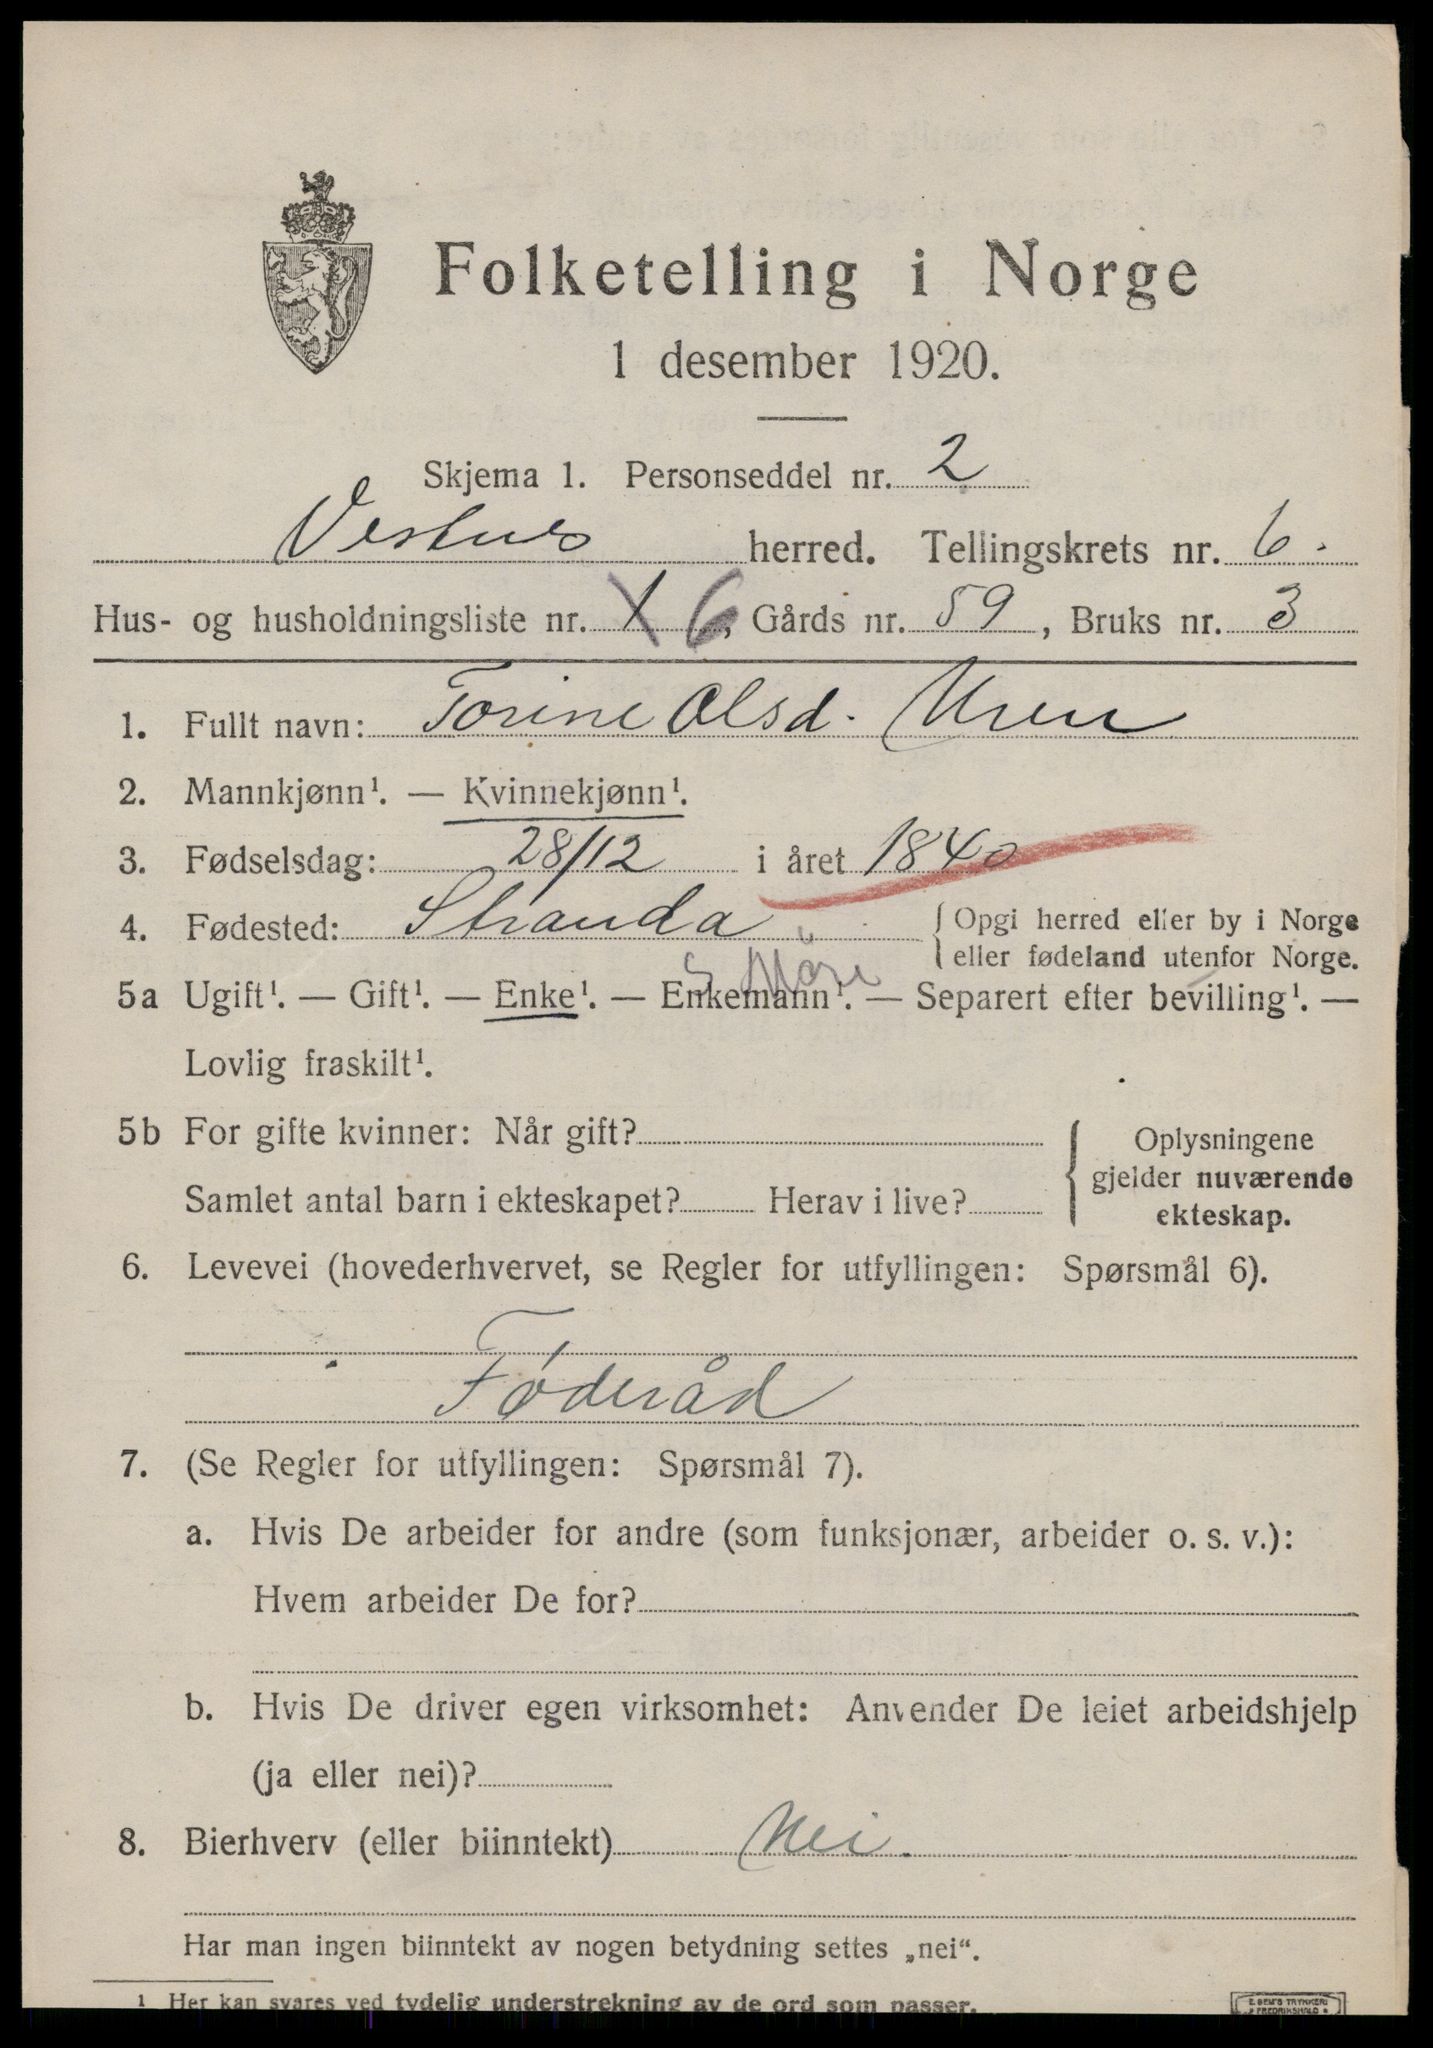 Folketelling i Norge
1 desember 1920.
Skjema 1. Personseddel nr. 2
Vestnes herred. Tellingskrets nr. 6.
Hus- og husholdningsliste nr. 1 6, Gårds nr. 59, Bruks nr. 3
1. Fullt navn: Torine Olsd. Uren
2. Mannkjønn¹. — Kvinnekjønn¹.
3. Fødselsdag: 28/12 i året 1840
4. Fødested: Stranda { Opgi herred eller by i Norge
eller fødeland utenfor Norge.
S Møre
5a Ugift¹. — Gift¹. — Enke¹. — Enkemann¹. — Separert efter bevilling¹. —
Lovlig fraskilt¹.
5b For gifte kvinner: Når gift?
Samlet antal barn i ekteskapet? Herav i live?
{ Oplysningene
gjelder nuværende
ekteskap.
6. Levevei (hovederhvervet, se Regler for utfyllingen: Spørsmål 6).
Føderåd
7. (Se Regler for utfyllingen: Spørsmål 7).
a. Hvis De arbeider for andre (som funksjonær, arbeider o. s. v.):
Hvem arbeider De for?
b. Hvis De driver egen virksomhet: Anvender De leiet arbeidshjelp
(ja eller nei)?
8. Bierhverv (eller biinntekt) Nei.
Har man ingen biinntekt av nogen betydning settes „nei“.
¹ Her kan svares ved tydelig understrekning av de ord som passer.
E. SEM'S TRYKKERI
FREDRIKSHALD